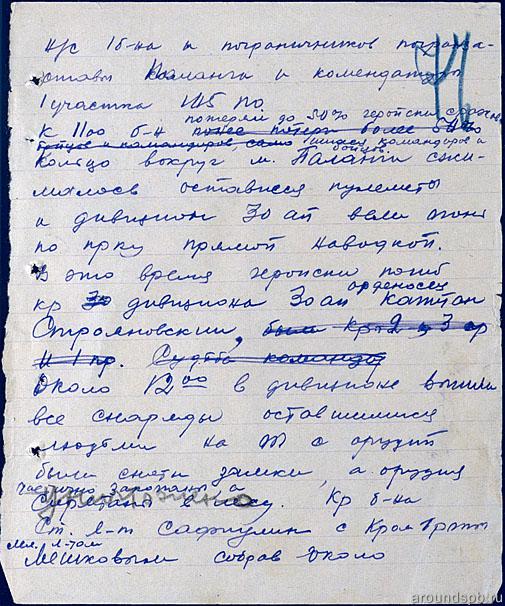 н/с 1 б-на и пограничников погранза-
ставы Паланга и комендатуры
1 участка 115 ПО.
потеряли до 50% геройски
К 1100 б-н понес потери более 50%
бойцов и командиров само командиров и
бойцов.
Кольцо вокруг м. Паланги сжи-
малось оставшеся пулеметы
и дивизион 30 ап вели огонь
по прку прямой наводкой.
В это время геройски погиб
орденосец
кр 30 дивизиона 30 ап Капитан
Строяновский, были Кр 2 и 3 ср
и 1 пр. Судьба командо
Около 12 00 в дивизионе вышли
все снаряды оставшимися
людьми на М с орудий
были сняты замки, а орудия
частично закопаны а
уничтожено
в песку. Кр б-на
Ст. л-т Сафиулин с Кром
Мл. л-том
Мешковым собрав около
aroundspb.ru